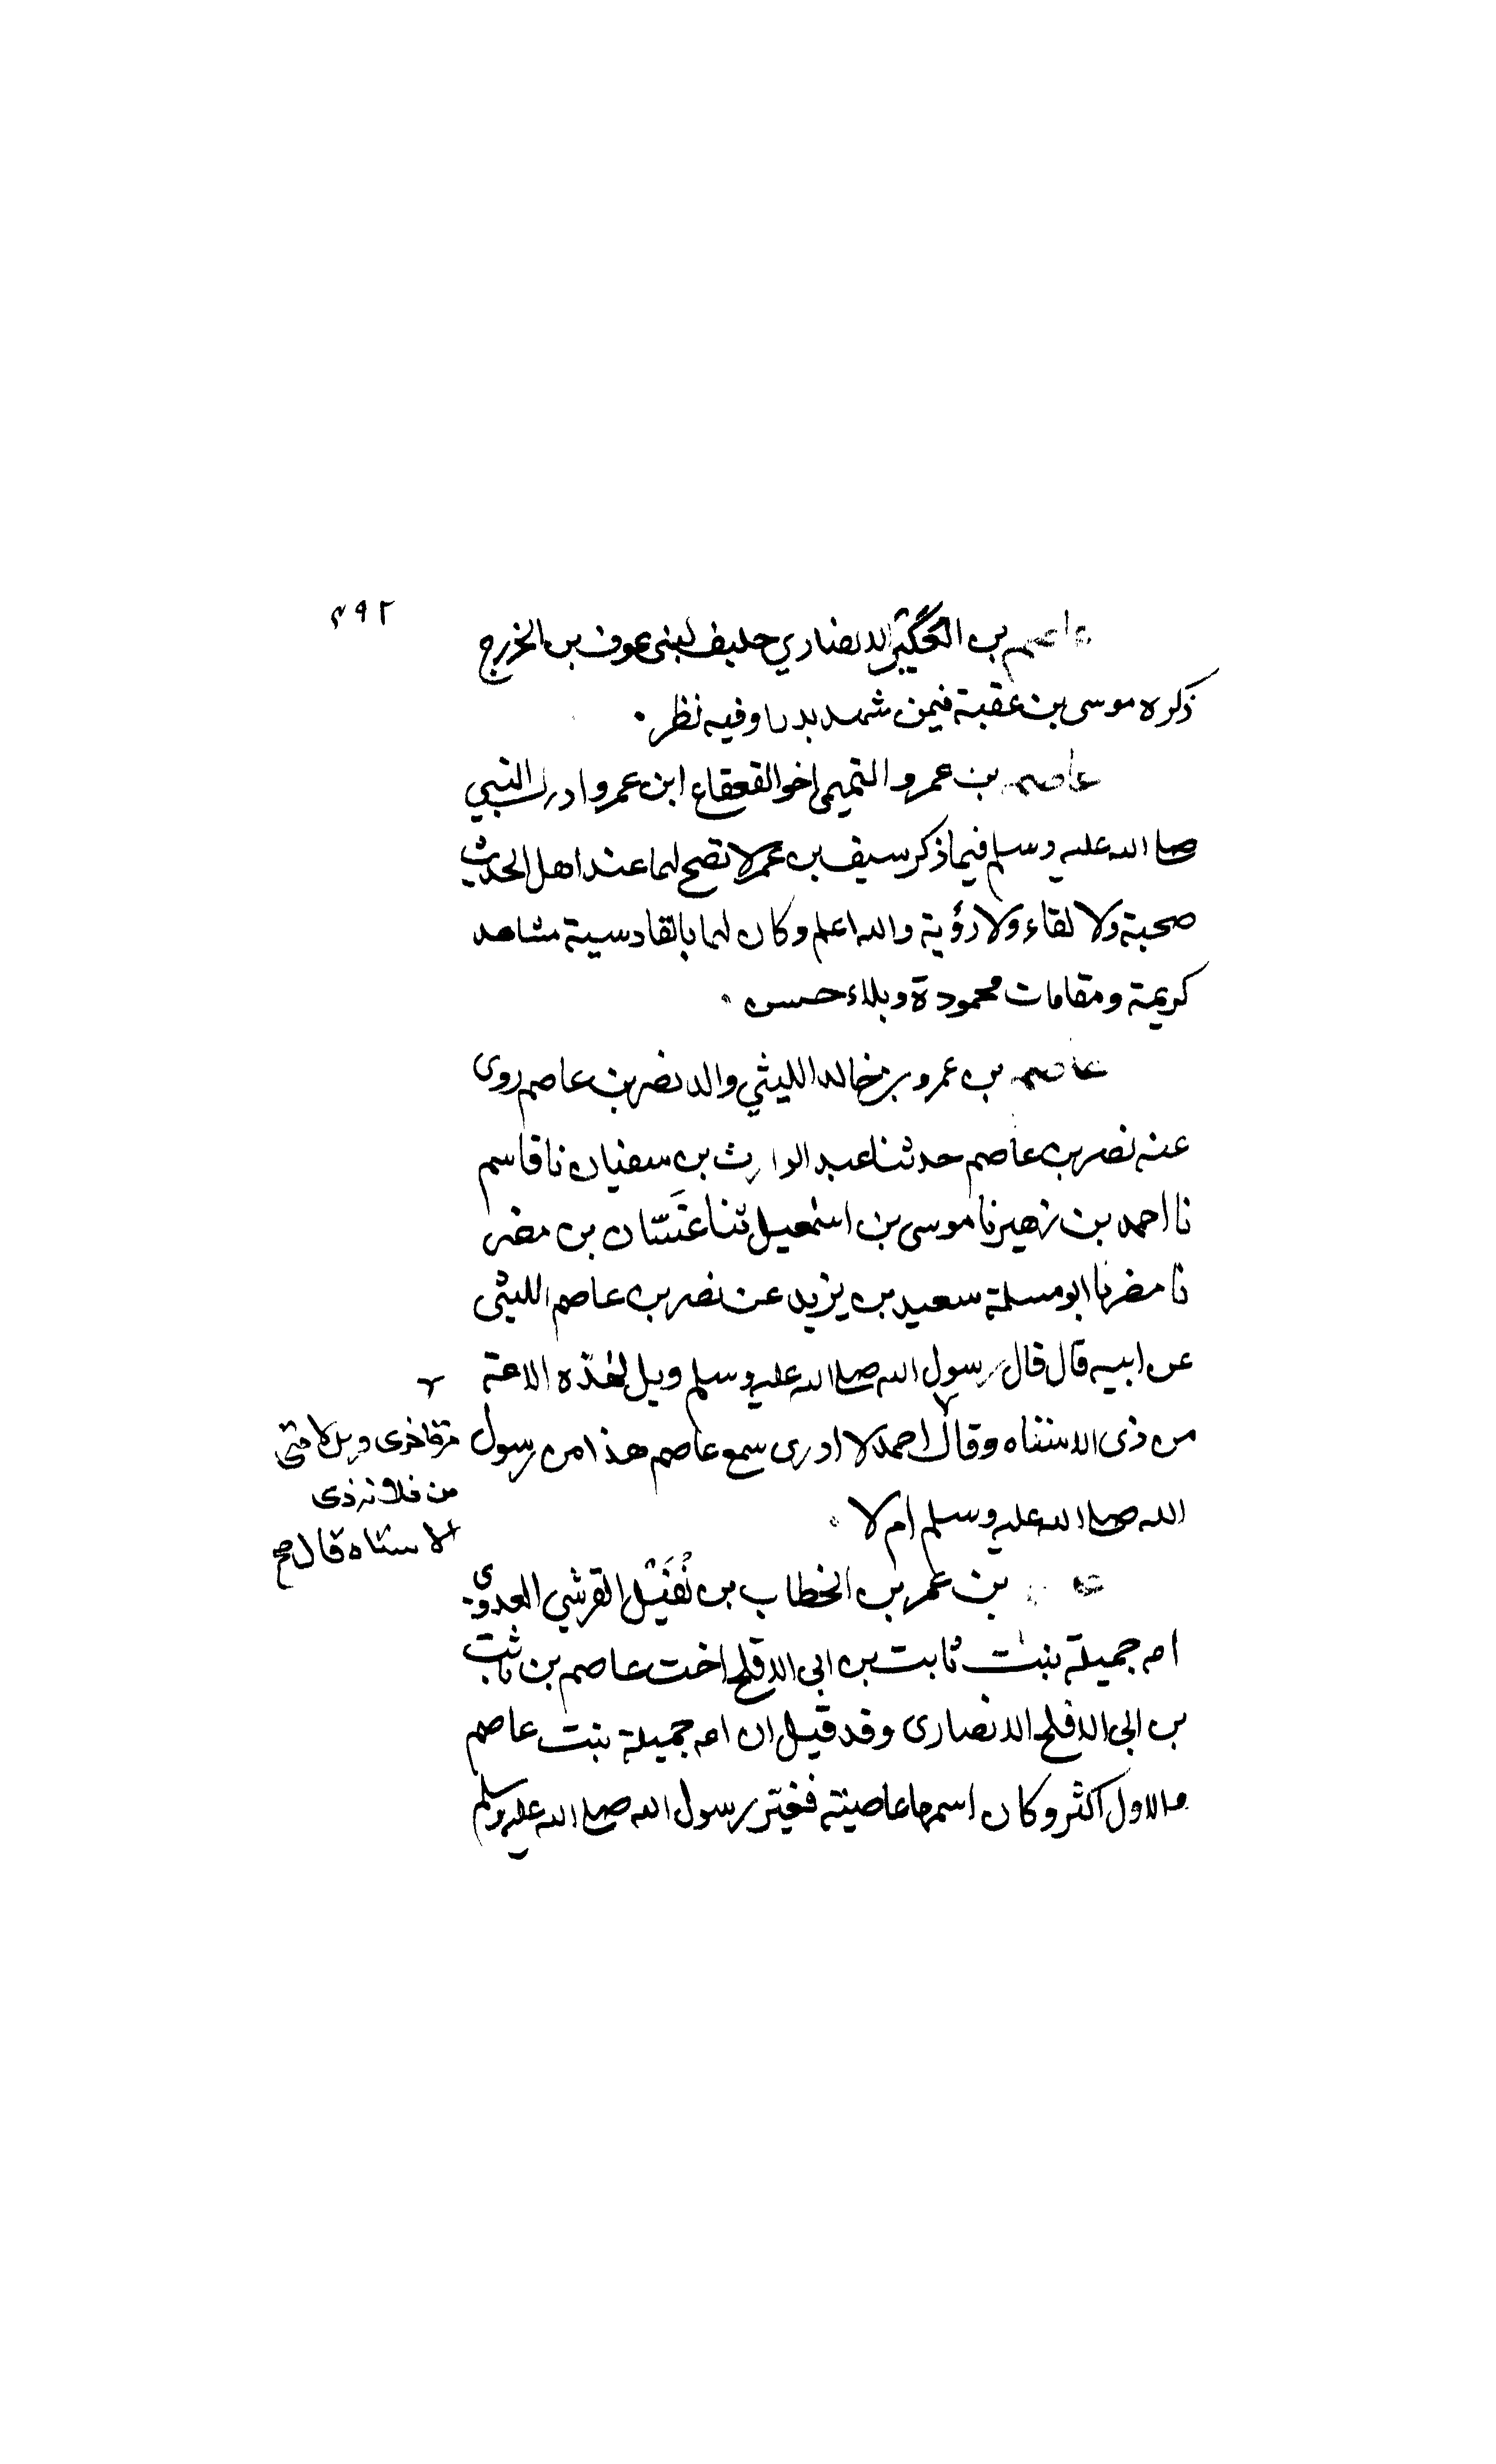 ٤٩٢
عاصم بن العكير الانصاري حليف لبنى عوف بن الخزرج
ذكره موسى بن عقبة فيمن شهد بدرا وفيه نظر.
عاصم بن عمرو التميمى اخو القعقاع ابن عمرو ادرك النبي
صلى الله عليه وسلم فيما ذكر سيف بن عمر لا تصح لهما عند اهل الحديث
صحبة ولا لقاء ولا رؤية والله اعلم وكان لهما بالقادسية مشاهد
كريمة ومقامات محمودة وبلاء حسن .
عاصم بن عمرو بن خالد الليثي والد نصر بن عاصم روى
عنه نصر بن عاصم حدثنا عبد الوارث بن سفيان نا قاسم
نا احمد بن زهير نا موسى بن اسمعيل ثنا غَسّان بن مضر
نا مضر نا ابو مسلمة سعيد بن يزيد عن نصر بن عاصم الليثى
عن ابيه قال قال رسول الله صلى الله عليه وسلم ويل لهذه الامة
من ذى الاستاه وقال احمد لا ادرى سمع عاصم هذا من رسول
الله صلى الله عليه وسلم ام لا .
مرة اخرى ويل لامتى
من فلان ذى
الاستاه قال صح
بن عمر بن الخطاب بن نُفَيْل القرشي العدوي
امه جميلة بنت ثابت بن ابى الاقلح اخت عاصم بن ثابت
بن ابى الاقلح الانصارى وقد قيل ان امه جميلة بنت عاصم
والاول اكثر وكان اسمها عاصية فغيّر رسول الله صلى الله عليه وسلم